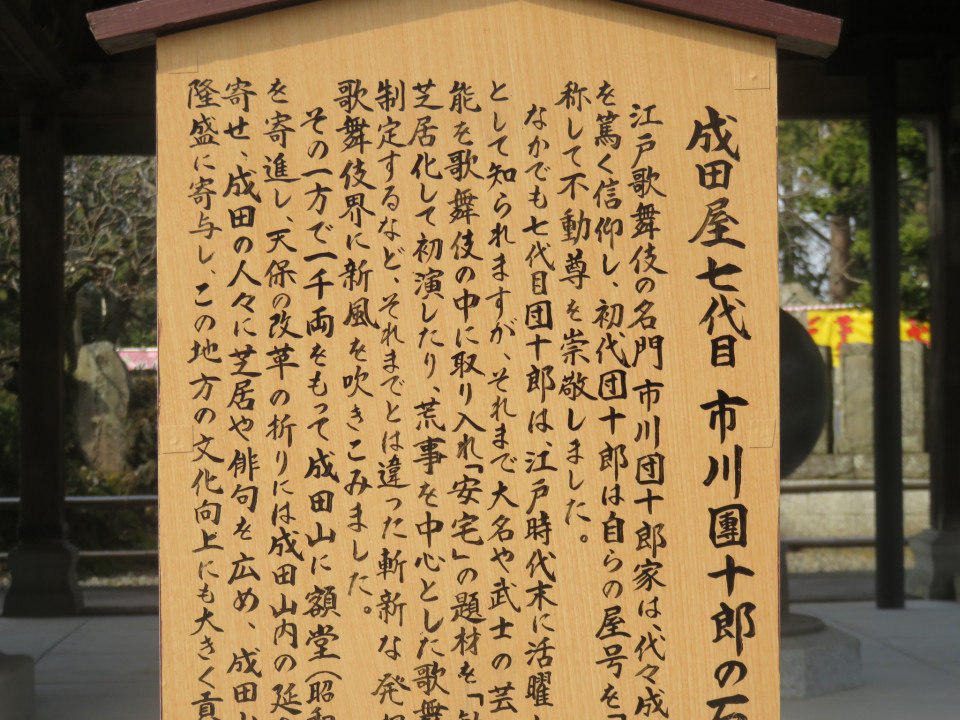 成田屋七代目 市川團十郎の
江戸歌舞伎の名門市川団十郎家は、代々成
を篤く信仰し、初代団十郎は自らの屋号を「
称して不動尊を崇敬しました。
なかでも七代目団十郎は、江戸時代末に活躍
として知られますが、それまで大名や武士の芸
能を歌舞伎の中に取り入れ「安宅」の題材を「
芝居化して初演したり、荒事を中心とした歌舞
制定するなど、それまでとは違った斬新な発
歌舞伎界に新風を吹きこみました。
その一方で一千両をもって成田山に額堂(昭和
を寄進し、天保の改革の折りには成田山内の延
寄せ、成田の人々に芝居や俳句を広め、成田
隆盛に寄与し、この地方の文化向上にも大きく貢